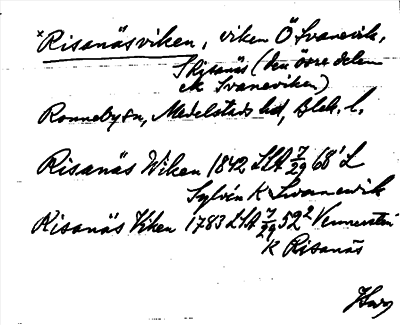 × Risanäsviken, viken Ö Svanevik,
S Risanäs (den övre delen
av Svaneviken)
Ronneby sn, Medelstads hd, Blek. l.
Risanäs Wiken 1842 LSA 7/29 68¹ L
Sylvén K Svanewik
Risanäs Viken 1783 LSA 7/29 52² Wennersten
K Risanäs